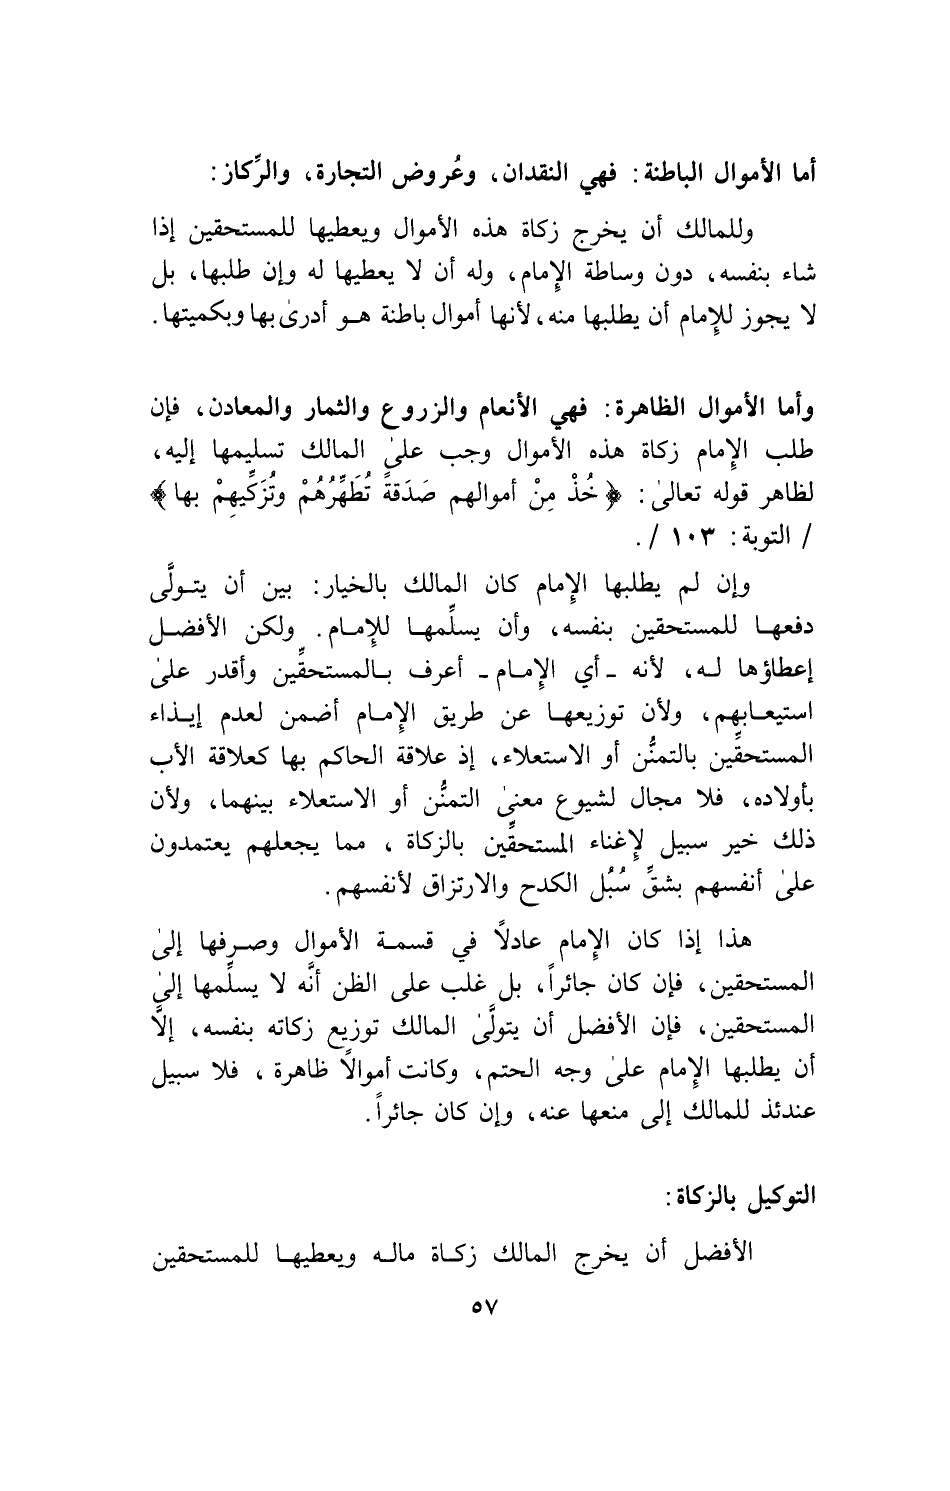 أما الأموال الباطنة: فهي النقدان، وعُروض التجارة، والرِّكاز:
وللمالك أن يخرج زكاة هذه الأموال ويعطيها للمستحقين إذا
شاء بنفسه، دون وساطة الإِمام، وله أن لا يعطيها له وإن طلبها، بل
لا يجوز للإِمام أن يطلبها منه، لأنها أموال باطنة هـو أدرىٰ بها وبكميتها.
وأما الأموال الظاهرة: فهي الأنعام والزروع والثمار والمعادن، فإن
طلب الإِمام زكاة هذه الأموال وجب علىٰ المالك تسليمها إليه،
لظاهر قوله تعالىٰ: ﴿ خُذْ مِنْ أموالهم صَدَقةً تُطَهِّرُهُمْ وتُزَكِّيهِمْ بها ﴾
/ التوبة: ١٠٣ /.
وإن لم يطلبها الإِمام كان المالك بالخيار: بين أن يتـولَّى
دفعهـا للمستحقين بنفسه، وأن يسلِّمهـا للإِمـام. ولكن الأفضـل
إعطاؤها لـه، لأنه ـ أي الإِمـام ـ أعرف بـالمستحقِّين وأقدر علىٰ
استيعـابهم، ولأن توزيعهـا عن طريق الإِمـام أضمن لعدم إيـذاء
المستحقِّين بالتمنُّن أو الاستعلاء، إذ علاقة الحاكم بها كعلاقة الأب
بأولاده، فلا مجال لشيوع معنىٰ التمنُّن أو الاستعلاء بينهما، ولأن
ذلك خير سبيل لإِغناء المستحقِّين بالزكاة ، مما يجعلهم يعتمدون
علىٰ أنفسهم بشقِّ سُبُل الكدح والارتزاق لأنفسهم.
هذا إذا كان الإِمام عادلاً في قسمـة الأموال وصـرفها إلىٰ
المستحقين، فإن كان جائراً، بل غلب على الظن أنَّه لا يسلِّمها إلىٰ
المستحقين، فإن الأفضل أن يتولَّىٰ المالك توزيع زكاته بنفسه، إلاَّ
أن يطلبها الإِمام علىٰ وجه الحتم، وكانت أموالاً ظاهرة ، فلا سبيل
عندئذ للمالك إلى منعها عنه، وإن كان جائراً.
التوكيل بالزكاة:
الأفضل أن يخرج المالك زكـاة مالـه ويعطيهـا للمستحقين
٥٧